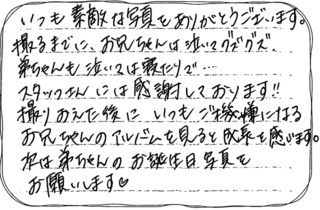 いつも素敵な写真をありがとうございます。
撮るまでに、お兄ちゃんは泣いてグズグズ、
弟ちゃんも泣いては寝たりで…
スタッフさんには感謝しております!!
撮りおえた後に いつもご機嫌になる
お兄ちゃんのアルバムを見ると成長を感います。
次は弟ちゃんのお誕生日写真を
お願いします♡